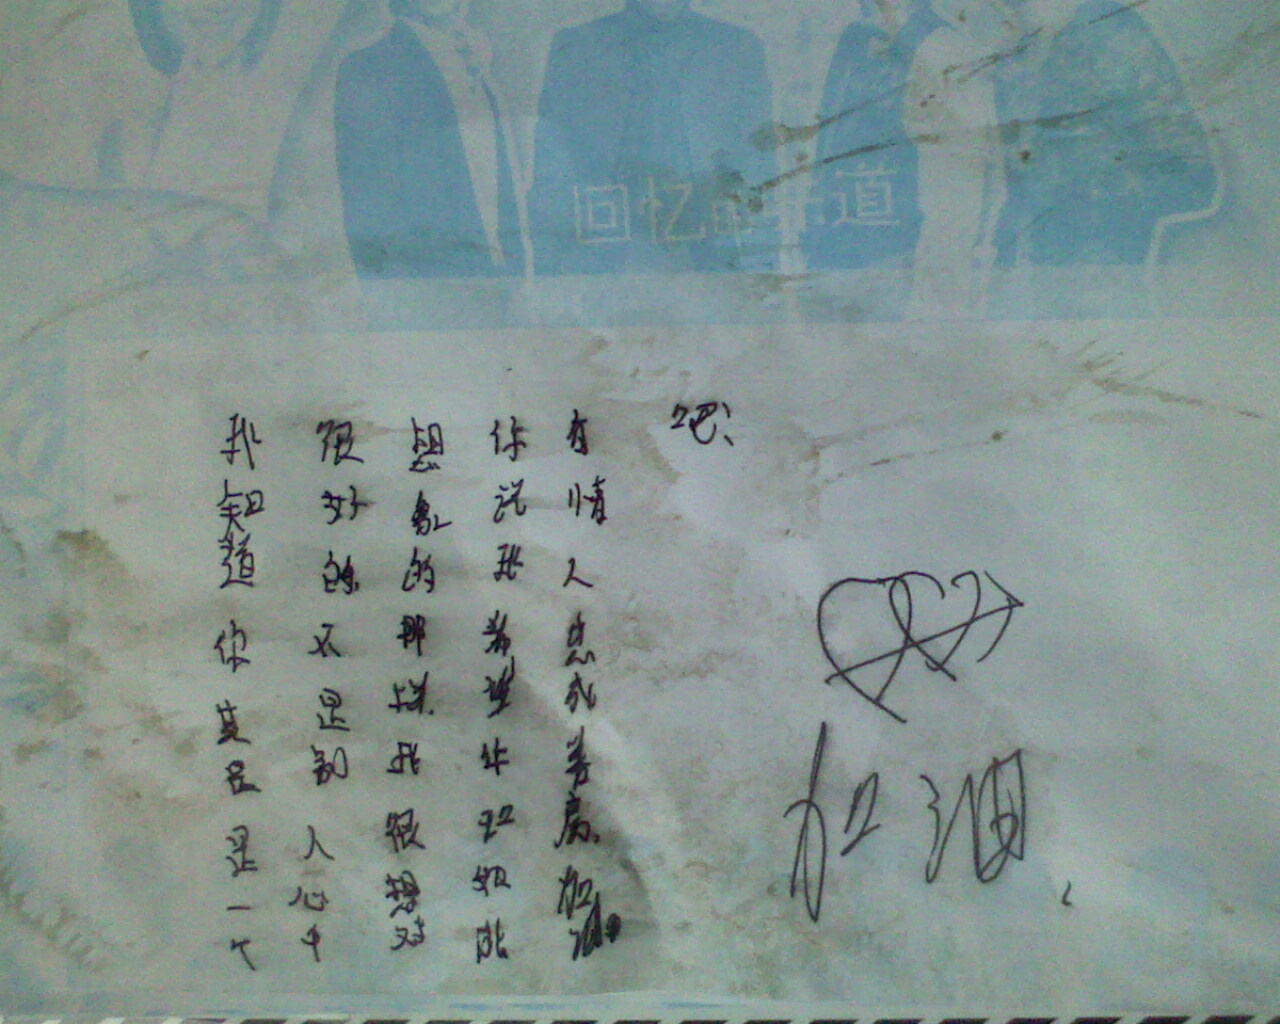 回忆的道
我知道你其实是一个
很好的不是别人心中
想象的那样我很想对
你说我希望你如此
有情人总成眷属加油
吧!
加油